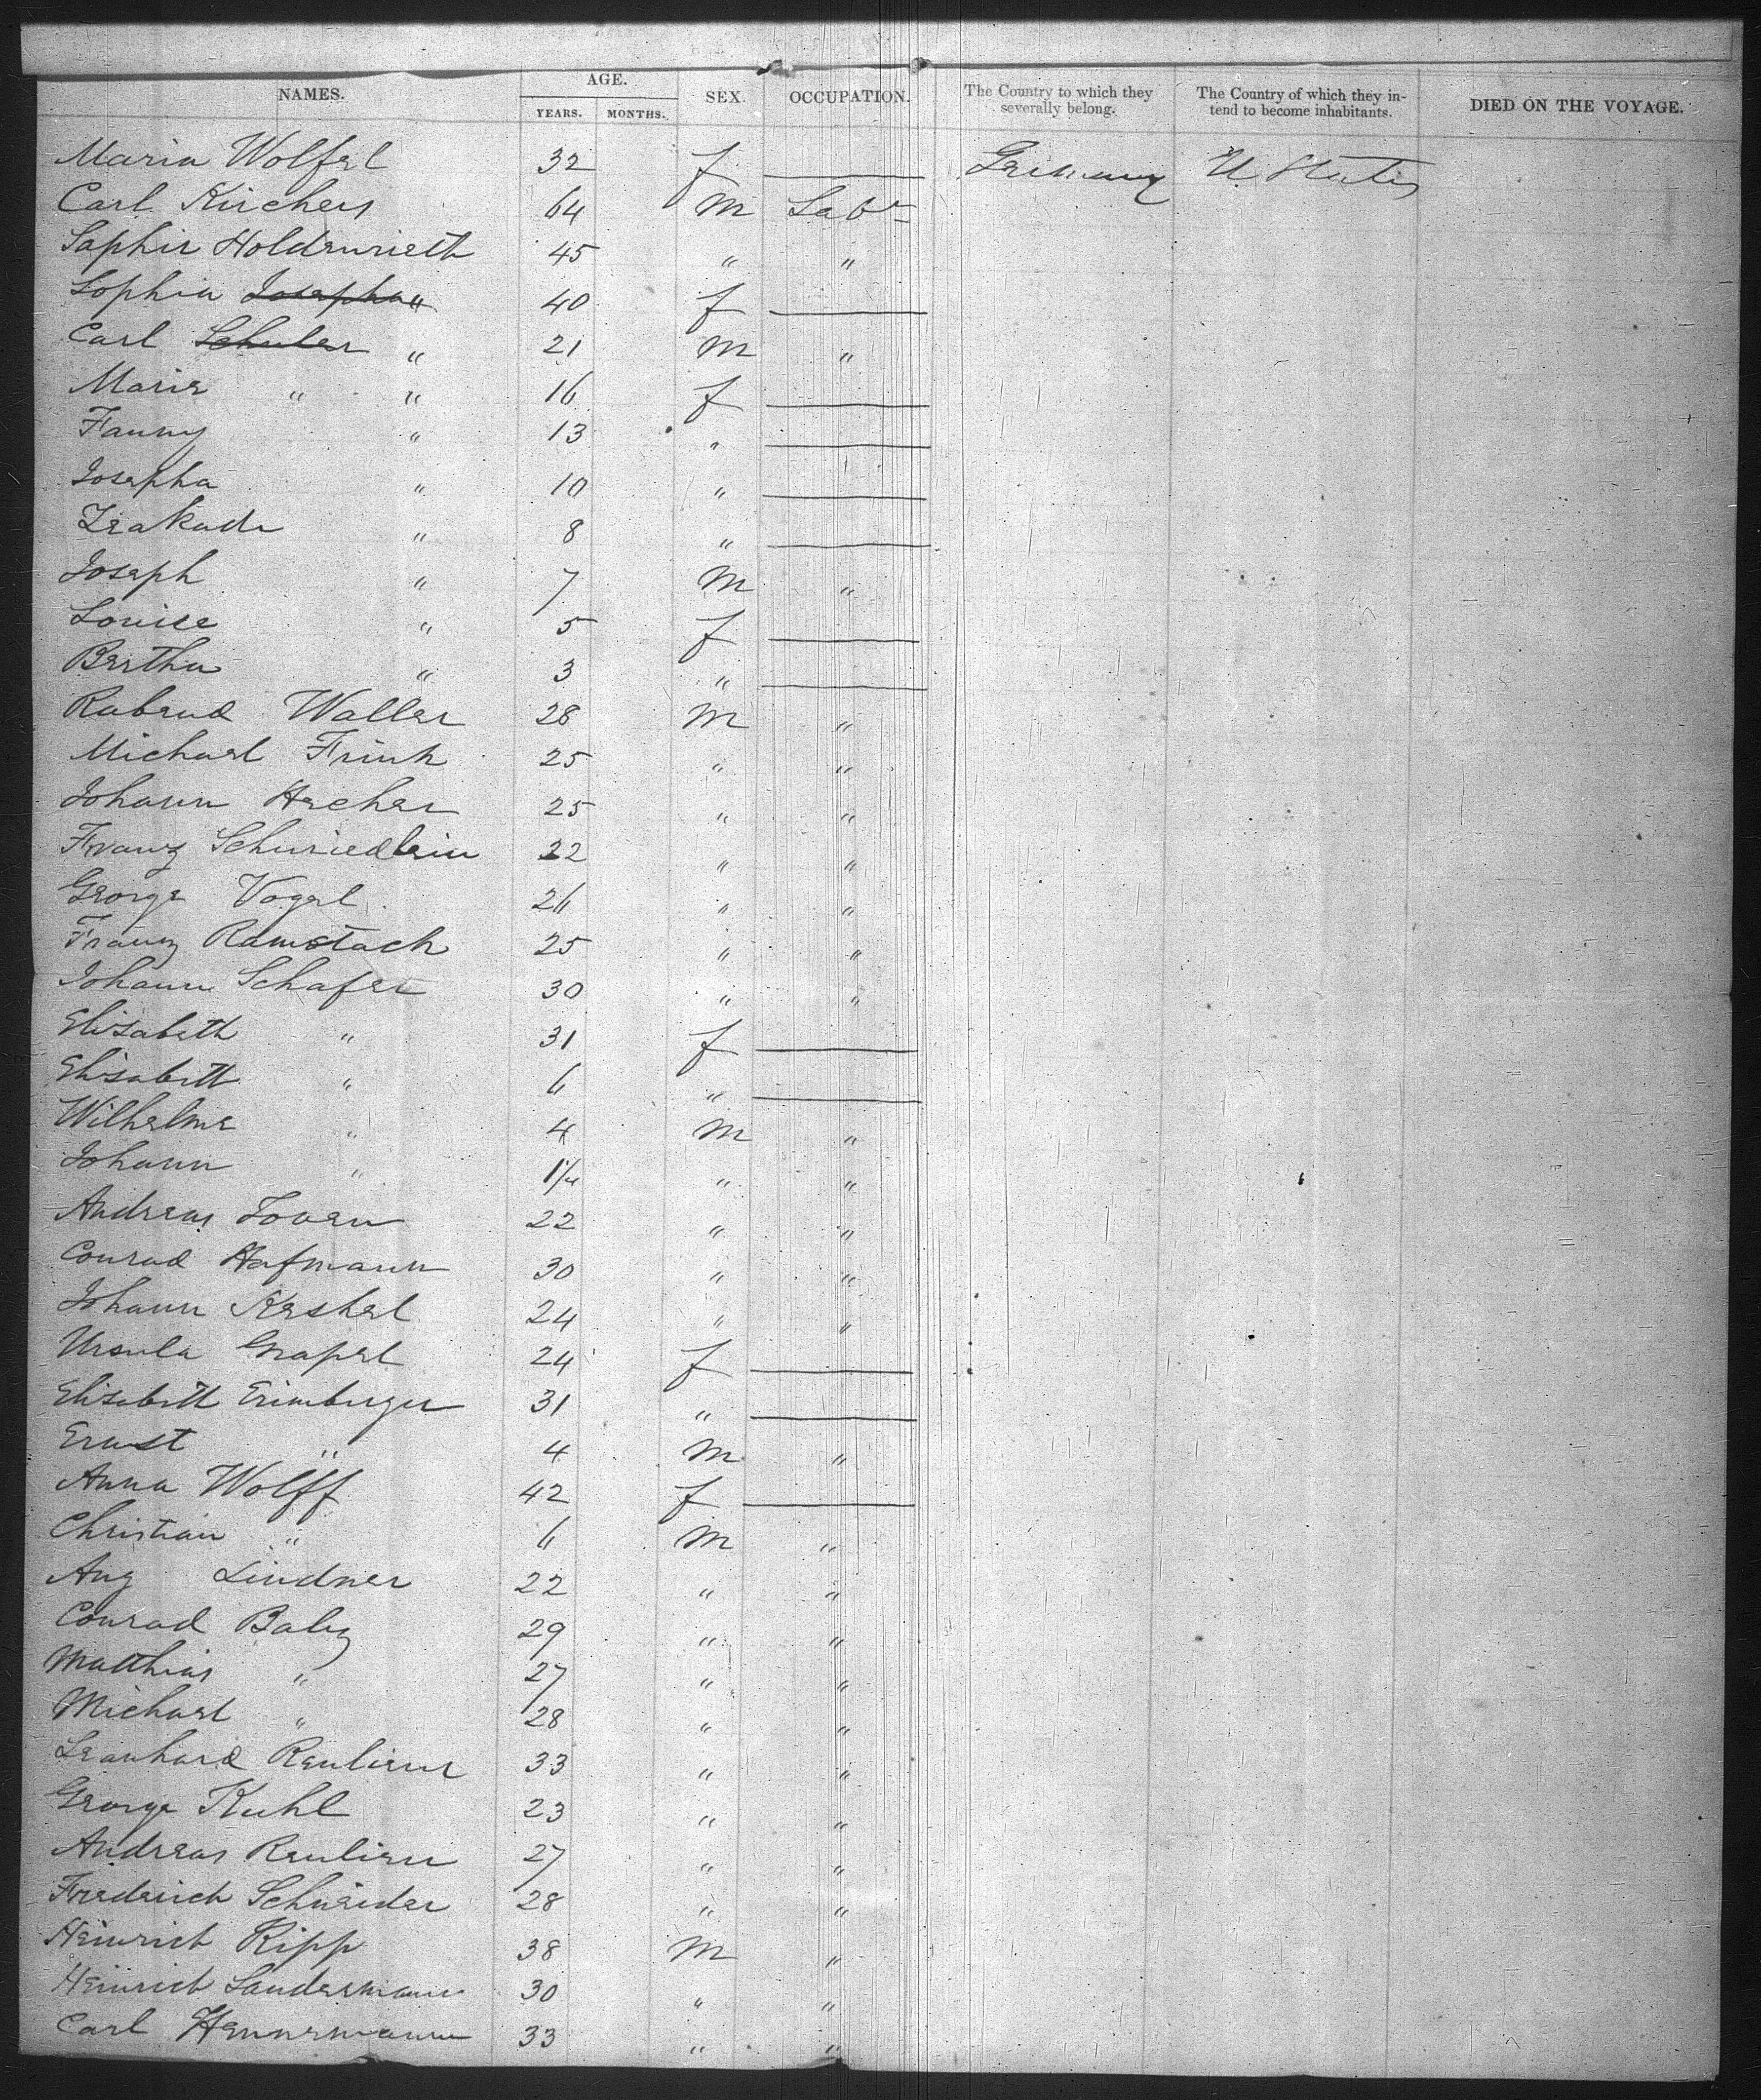 NAMES. AGE. YEARS. MONTHS. SEX. OCCUPATION. The Country to which they severally belong. The Country of which they intend to become inhabitants. DIED ON THE VOYAGE.
Maria Wolfel 32 f — Germany U. States
Carl Kirchers 64 m Labr
Saphir Holdenrieth 45 " "
Sophia Josepha " 40 f —
Carl Schuler " 21 m "
Marie " " 16 f —
Fanny " 13 " —
Josepha " 10 " —
Leakade " 8 " —
Joseph " 7 m "
Louise " 5 f —
Bertha " 3 " —
Rabend Waller 28 m "
Michael Frink 25 " "
Johann Hecher 25 " "
Franz Schmiedlein 22 " "
George Vogel 26 " "
Franz Ramstach 25 " "
Johann Schafer 30 " "
Elisabeth " 31 f —
Elisabeth " 6 " —
Wilhelme " 4 m "
Johann " 1¼ " "
Andreas Loven 22 " "
Conrad Hofmann 30 " "
Johann Keshel 24 " "
Ursula Grapel 24 f —
Elisabeth Erimberger 31 " —
Ernst " 4 m "
Anna Wolff 42 f —
Christian " 6 m "
Aug Lindner 22 " "
Conrad Baley 29 " "
Matthias " 27 " "
Michael " 28 " "
Leonhard Reulien 33 " "
George Kuhl 23 " "
Andreas Reulien 27 " "
Friedrich Schneider 28 " "
Heinrich Ripp 38 m "
Heinrich Landermann 30 " "
Carl Hennemann 33 " "